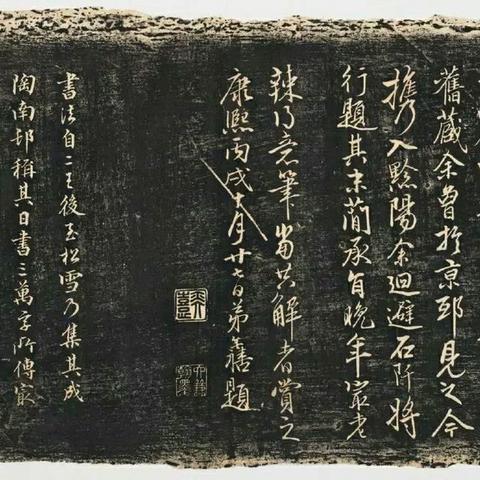 舊藏余曾於京邸見之今
攜入黔陽余迴避石阡將
行題其末蘭承旨晚年最老
辣得意筆當共解者賞之
康熙丙戌十月廿七日弟奕禧題
書法自二王後至松雪乃集其成
陶南邨稱其日書三萬字所傳最